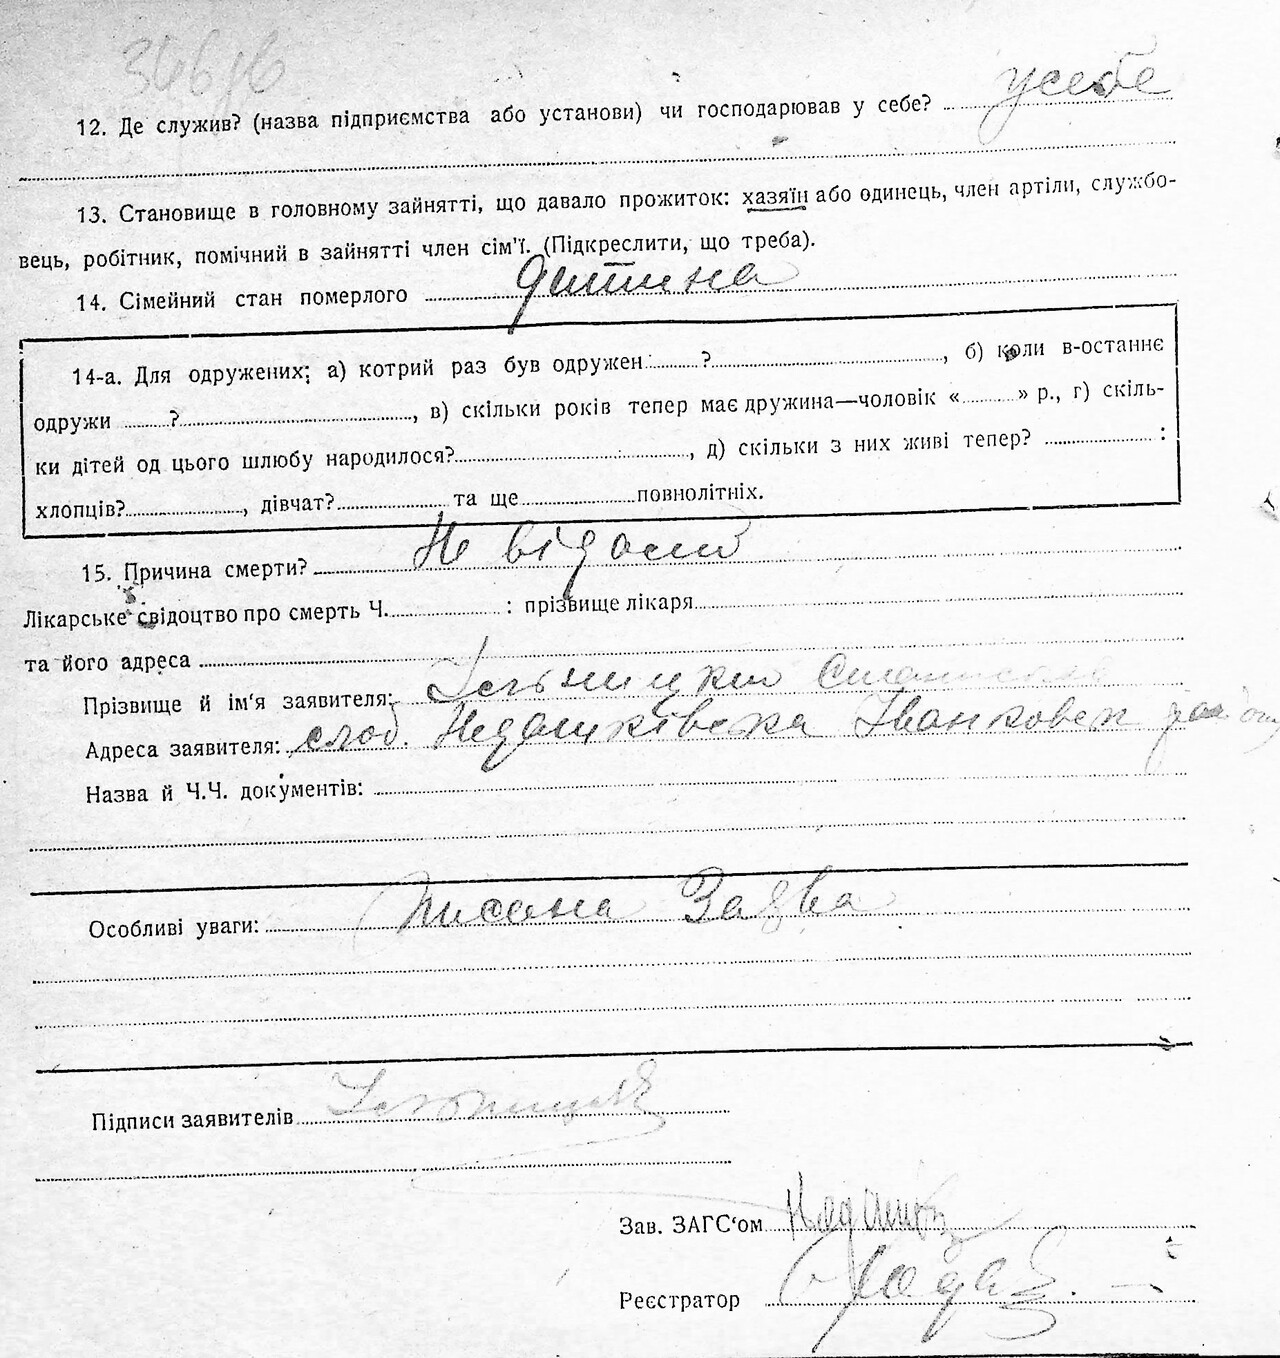 12. Де служив? (назва підприємства або установи) чи господарював у себе? усебе
13. Становище в головному зайнятті, що давало прожиток: хазяїн або одинець, член артіли, службо-
вець, робітник, помічний в зайнятті член сім'ї. (Підкреслити, що треба).
14. Сімейний стан померлого дитина
14-а. Для одружених: а) котрий раз був одружен ? , б) коли в-останнє
одружи ? , в) скільки років тепер має дружина—чоловік « » р., г) скіль-
ки дітей од цього шлюбу народилося? , д) скільки з них живі тепер? :
хлопців? , дівчат? та ще повнолітніх.
15. Причина смерти? Не відомо
Лікарське свідоцтво про смерть Ч. : прізвище лікаря
та його адреса
Прізвище й ім'я заявителя:
Адреса заявителя: слоб. Недашківська Іванковск
Назва й Ч.Ч. документів:
Особливі уваги: Писана Заява
Підписи заявителів
Зав. ЗАГС'ом
Реєстратор